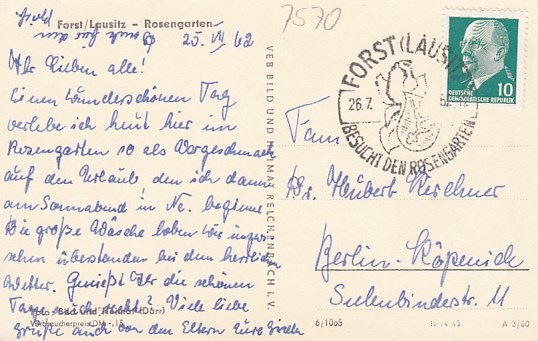 7570
Forst/Lausitz - Rosengarten
25. VII 62
Ihr Lieben alle!
Einen wunderschönen Tag
verlebe ich heut hier im
Rosengarten so als Vorgeschmack
auf den Urlaub, den ich dann
am Sonnabend in Ne. beginne.
Die große Wäsche haben wir inzwi-
schen überstanden bei dem herrlichen
Wetter. Genießt Ihr die schönen
Tage auch recht? Viele liebe
Grüße auch von den Eltern Eure Gisela
Foto: Bild und Heimat (Darr)
Verbraucherpreis DM -.15
VEB BILD UND HEIMAT REICHENBACH i. V.
FORST (LAUSITZ)
26.7.
BESUCHT DEN ROSENGARTEN
10
DEUTSCHE
DEMOKRATISCHE REPUBLIK
Fam
Dr. Hubert Kirchner
Berlin-Köpenick
Eulenbindestr. 11
6/1065
A 3/60